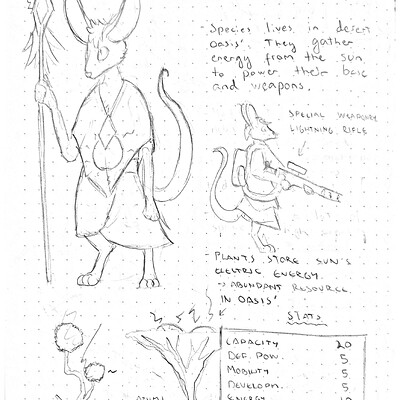 - Species lives in desert
oasis'. They gather
energy from the sun
to power their base
and weapons.
SPECIAL WEAPONRY
LIGHTNING RIFLE
- PLANTS STORE SUN'S
ELECTRIC ENERGY.
-> ABUNDANT RESOURCE
IN OASIS'
STATS
CAPACITY 20
DEF. POW. 5
MOBILITY 5
DEVELOPM. 5
ENERGY 10